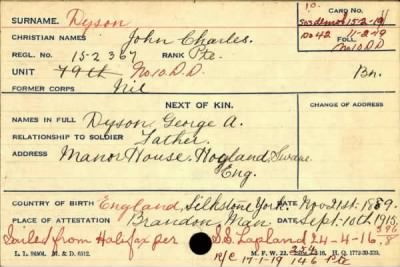 SURNAME. Dyson
CARD NO.
CHRISTIAN NAMES John Charles.
REGL. NO. 152367 RANK Pte.
No 42 11-2-19
FOLL.
No 10 D.D
UNIT 79th No. 10. D.D. Bn.
FORMER CORPS Nil
NEXT OF KIN. CHANGE OF ADDRESS
NAMES IN FULL Dyson, George A.
RELATIONSHIP TO SOLDIER Father.
ADDRESS Manor House, Hogland, Swane
Eng.
COUNTRY OF BIRTH England, Silkstone York. DATE Nov 21st 1889.
PLACE OF ATTESTATION Brandon, Man DATE Sept. 10th 1915
Sailed from Halifax per S.S. Lapland 24-4-16.
R/C 17-1-19
L. L. M. & D. 6512. M. F. W. 22 H. Q. 1772-39-339.